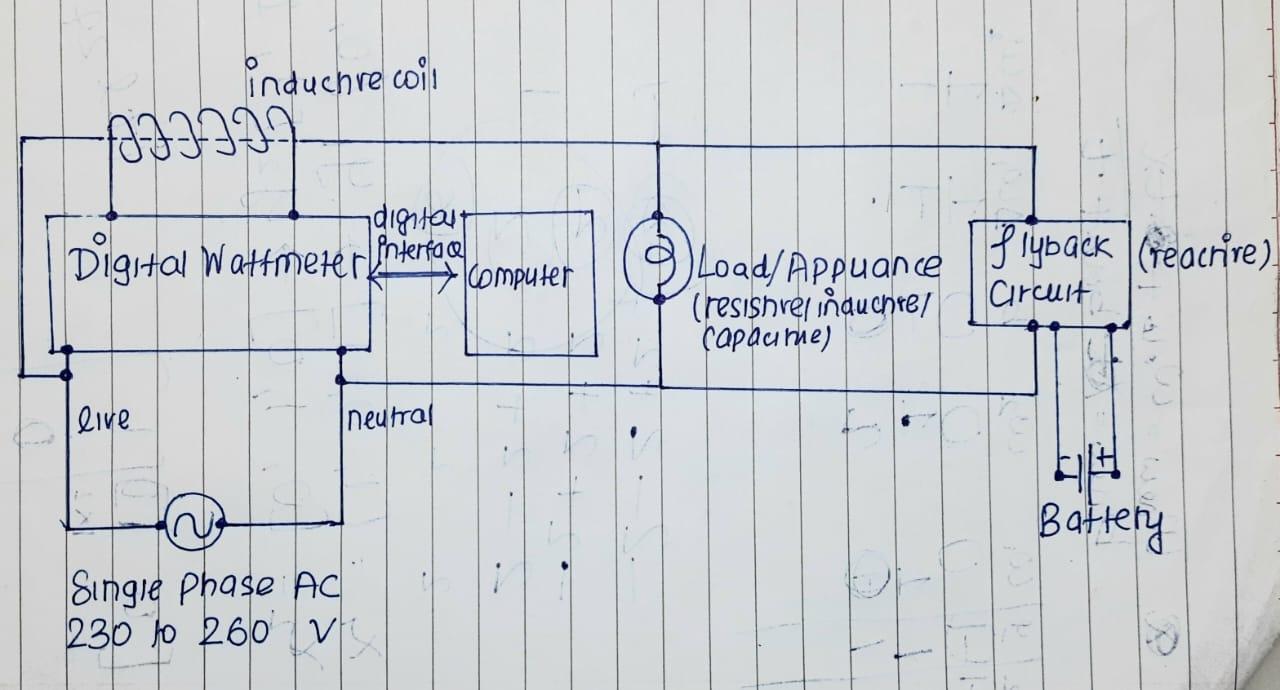 inductive coil
digital
interface
Digital Wattmeter
computer
Load/Appliance
(resistive/inductive/
capacitive)
flyback
circuit
(reactive)
live
neutral
- +
Battery
Single Phase AC
230 to 260 V